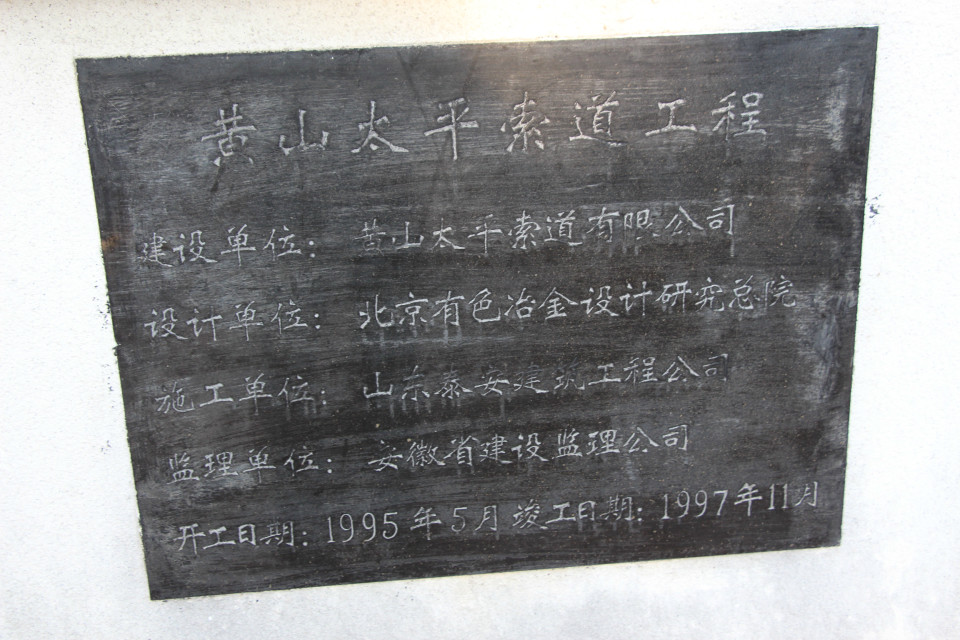 黄山太平索道工程
建设单位：黄山太平索道有限公司
设计单位：北京有色冶金设计研究总院
施工单位：山东泰安建筑工程公司
监理单位：安徽省建设监理公司
开工日期：1995年5月 竣工日期：1997年11月